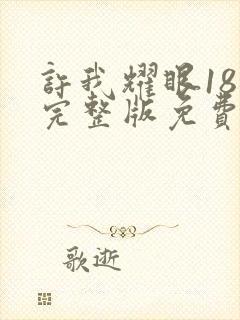 許我耀眼18
完整版免費
歌逝